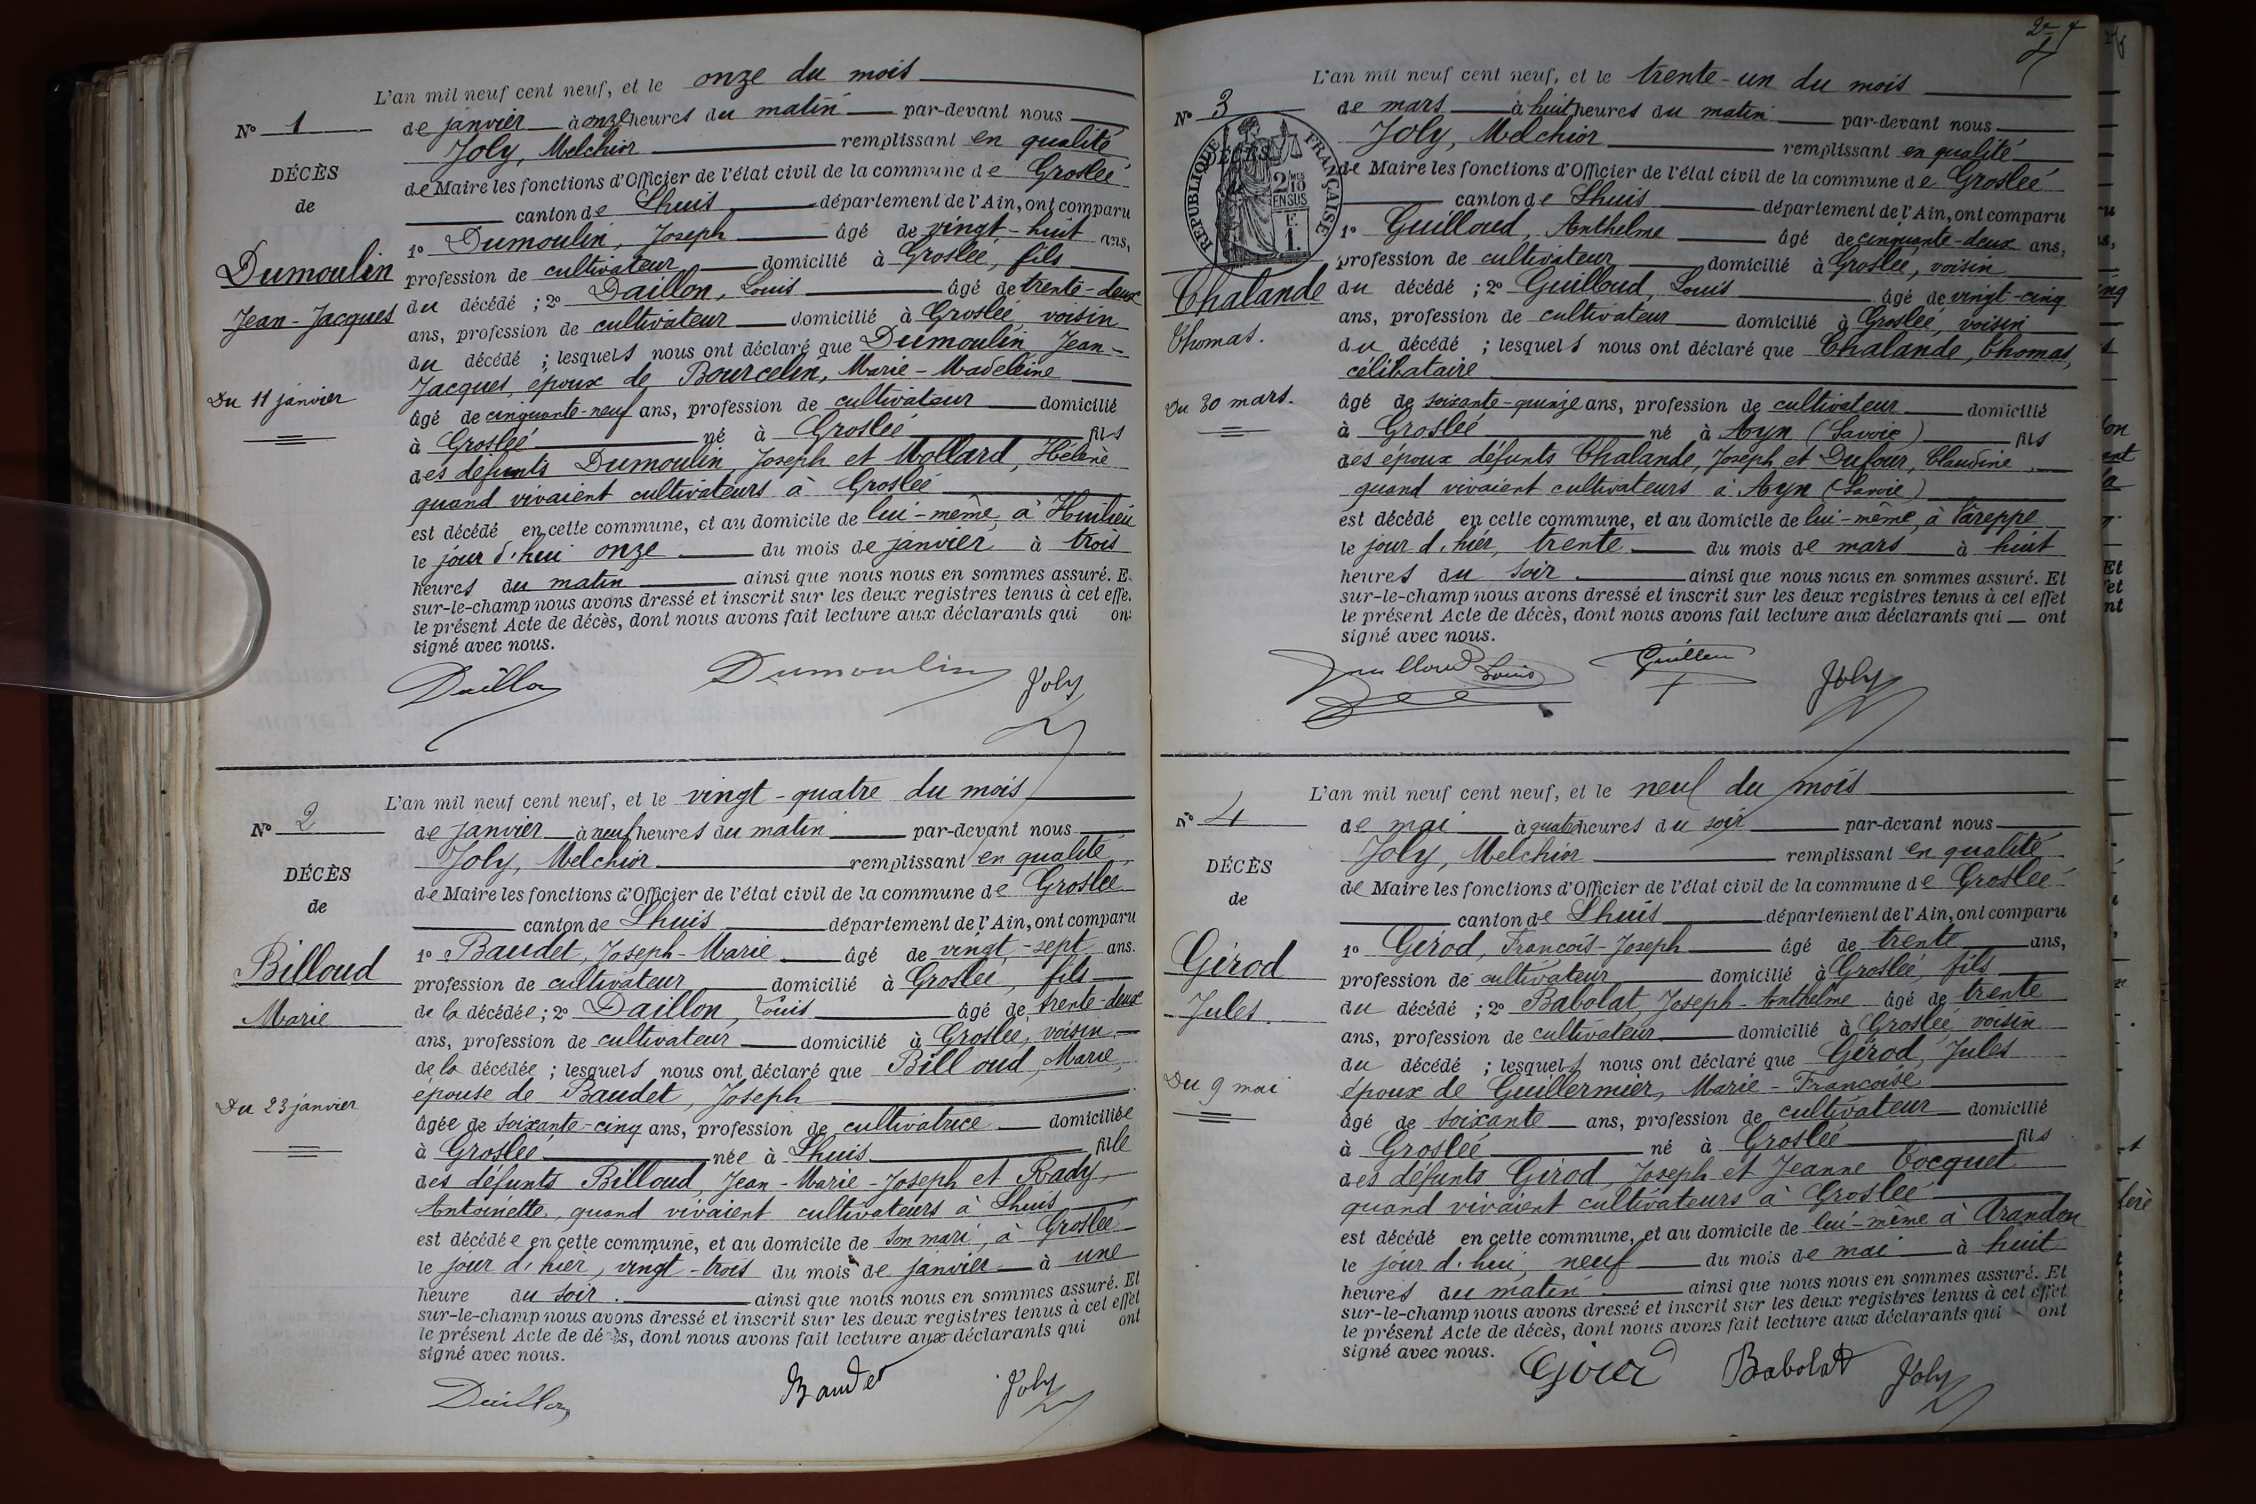 L'an mil neuf cent neuf, et le onze du mois
N° 1
de janvier à onze heures du matin par-devant nous
Joly, Melchior remplissant en qualité
DÉCÈS
de Maire les fonctions d'Officier de l'état civil de la commune de Grosleé
de
canton de Lhuis département de l'Ain, ont comparu
1° Dumoulin, Joseph âgé de vingt-huit ans,
Dumoulin
profession de cultivateur domicilié à Groslée, fils
du décédé ; 2° Daillon, Louis âgé de trente-deux
Jean-Jacques
ans, profession de cultivateur domicilié à Groslée, voisin
du décédé ; lesquels nous ont déclaré que Dumoulin Jean-
Jacques, époux de Bourcelin, Marie-Madeleine
Du 11 janvier
âgé de cinquante-neuf ans, profession de cultivateur domicilié
à Grosleé né à Groslée fils
des défunts Dumoulin, Joseph et Mollard, Hélène
quand vivaient cultivateurs à Grosleé
est décédé en cette commune, et au domicile de lui-même, à Huilieu
le jour d'hui onze du mois de janvier à trois
heures du matin ainsi que nous nous en sommes assuré. E
sur-le-champ nous avons dressé et inscrit sur les deux registres tenus à cet effe
le présent Acte de décès, dont nous avons fait lecture aux déclarants qui on
signé avec nous.
Daillon Dumoulin Joly
L'an mil neuf cent neuf, et le vingt-quatre du mois
N° 2
de janvier à neuf heures du matin par-devant nous
Joly, Melchior remplissant en qualité
DÉCÈS
de Maire les fonctions d'Officier de l'état civil de la commune de Groslee
de
canton de Lhuis département de l'Ain, ont comparu
1° Baudet, Joseph-Marie âgé de vingt-sept ans.
Billoud
profession de cultivateur domicilié à Groslée, fils
de la décédée ; 2° Daillon, Louis âgé de trente-deux
Marie
ans, profession de cultivateur domicilié à Groslée, voisin
de la décédée ; lesquels nous ont déclaré que Billoud, Marie,
épouse de Baudet, Joseph
Du 23 janvier
âgée de soixante-cinq ans, profession de cultivatrice domiciliée
à Groslée née à Lhuis fille
des défunts Billoud, Jean-Marie-Joseph et Rady,
Antoinette, quand vivaient cultivateurs à Lhuis
est décédée en cette commune, et au domicile de son mari, à Groslée
le jour d'hier, vingt-trois du mois de janvier à une
heure du soir. ainsi que nous nous en sommes assuré. Et
sur-le-champ nous avons dressé et inscrit sur les deux registres tenus à cet effet
le présent Acte de décès, dont nous avons fait lecture aux déclarants qui ont
signé avec nous.
Daillon Baudet Joly
L'an mil neuf cent neuf, et le trente-un du mois
N° 3
de mars à huit heures du matin par-devant nous
Joly, Melchior remplissant en qualité
DÉCÈS
RÉPUBLIQUE FRANÇAISE
2/10 MES EN SUS
F. 1.
de Maire les fonctions d'Officier de l'état civil de la commune de Grosleé
canton de Lhuis département de l'Ain, ont comparu
1° Guilloud, Anthelme âgé de cinquante-deux ans,
profession de cultivateur domicilié à Groslée, voisin
Chalande
du décédé ; 2° Guilloud, Louis âgé de vingt-cinq
Thomas.
ans, profession de cultivateur domicilié à Grosleé, voisin
du décédé ; lesquels nous ont déclaré que Chalande, Thomas,
célibataire
Du 30 mars.
âgé de soixante-quinze ans, profession de cultivateur domicilié
à Groslee né à Ayn (Savoie) fils
des époux défunts Chalande, Joseph et Dufour, Claudine,
quand vivaient cultivateurs à Ayn (Savoie)
est décédé en cette commune, et au domicile de lui-même, à Vareppe
le jour d'hier, trente du mois de mars à huit
heures du soir. ainsi que nous nous en sommes assuré. Et
sur-le-champ nous avons dressé et inscrit sur les deux registres tenus à cet effet
le présent Acte de décès, dont nous avons fait lecture aux déclarants qui ont
signé avec nous.
Guilloud Louis Guillou Joly
L'an mil neuf cent neuf, et le neuf du mois
N° 4
de mai à quatre heures du soir par-devant nous
Joly, Melchior remplissant en qualité
DÉCÈS
de Maire les fonctions d'Officier de l'état civil de la commune de Grosleé
de
canton de Lhuis département de l'Ain, ont comparu
1° Girod, François-Joseph âgé de trente ans,
Girod
profession de cultivateur domicilié à Groslée, fils
du décédé ; 2° Babolat, Joseph-Anthelme âgé de trente
Jules.
ans, profession de cultivateur domicilié à Grosleé voisin
du décédé ; lesquels nous ont déclaré que Girod, Jules
époux de Guillermier, Marie-Françoise
Du 9 mai
âgé de soixante ans, profession de cultivateur domicilié
à Grosleé né à Groslée fils
des défunts Girod, Joseph et Jeanne Cocquet
quand vivaient cultivateurs à Groslée
est décédé en cette commune, et au domicile de lui-même à Arandon
le jour d'hui, neuf du mois de mai à huit
heures du matin ainsi que nous nous en sommes assuré. Et
sur-le-champ nous avons dressé et inscrit sur les deux registres tenus à cet effet
le présent Acte de décès, dont nous avons fait lecture aux déclarants qui ont
signé avec nous.
Girod Babolat Joly